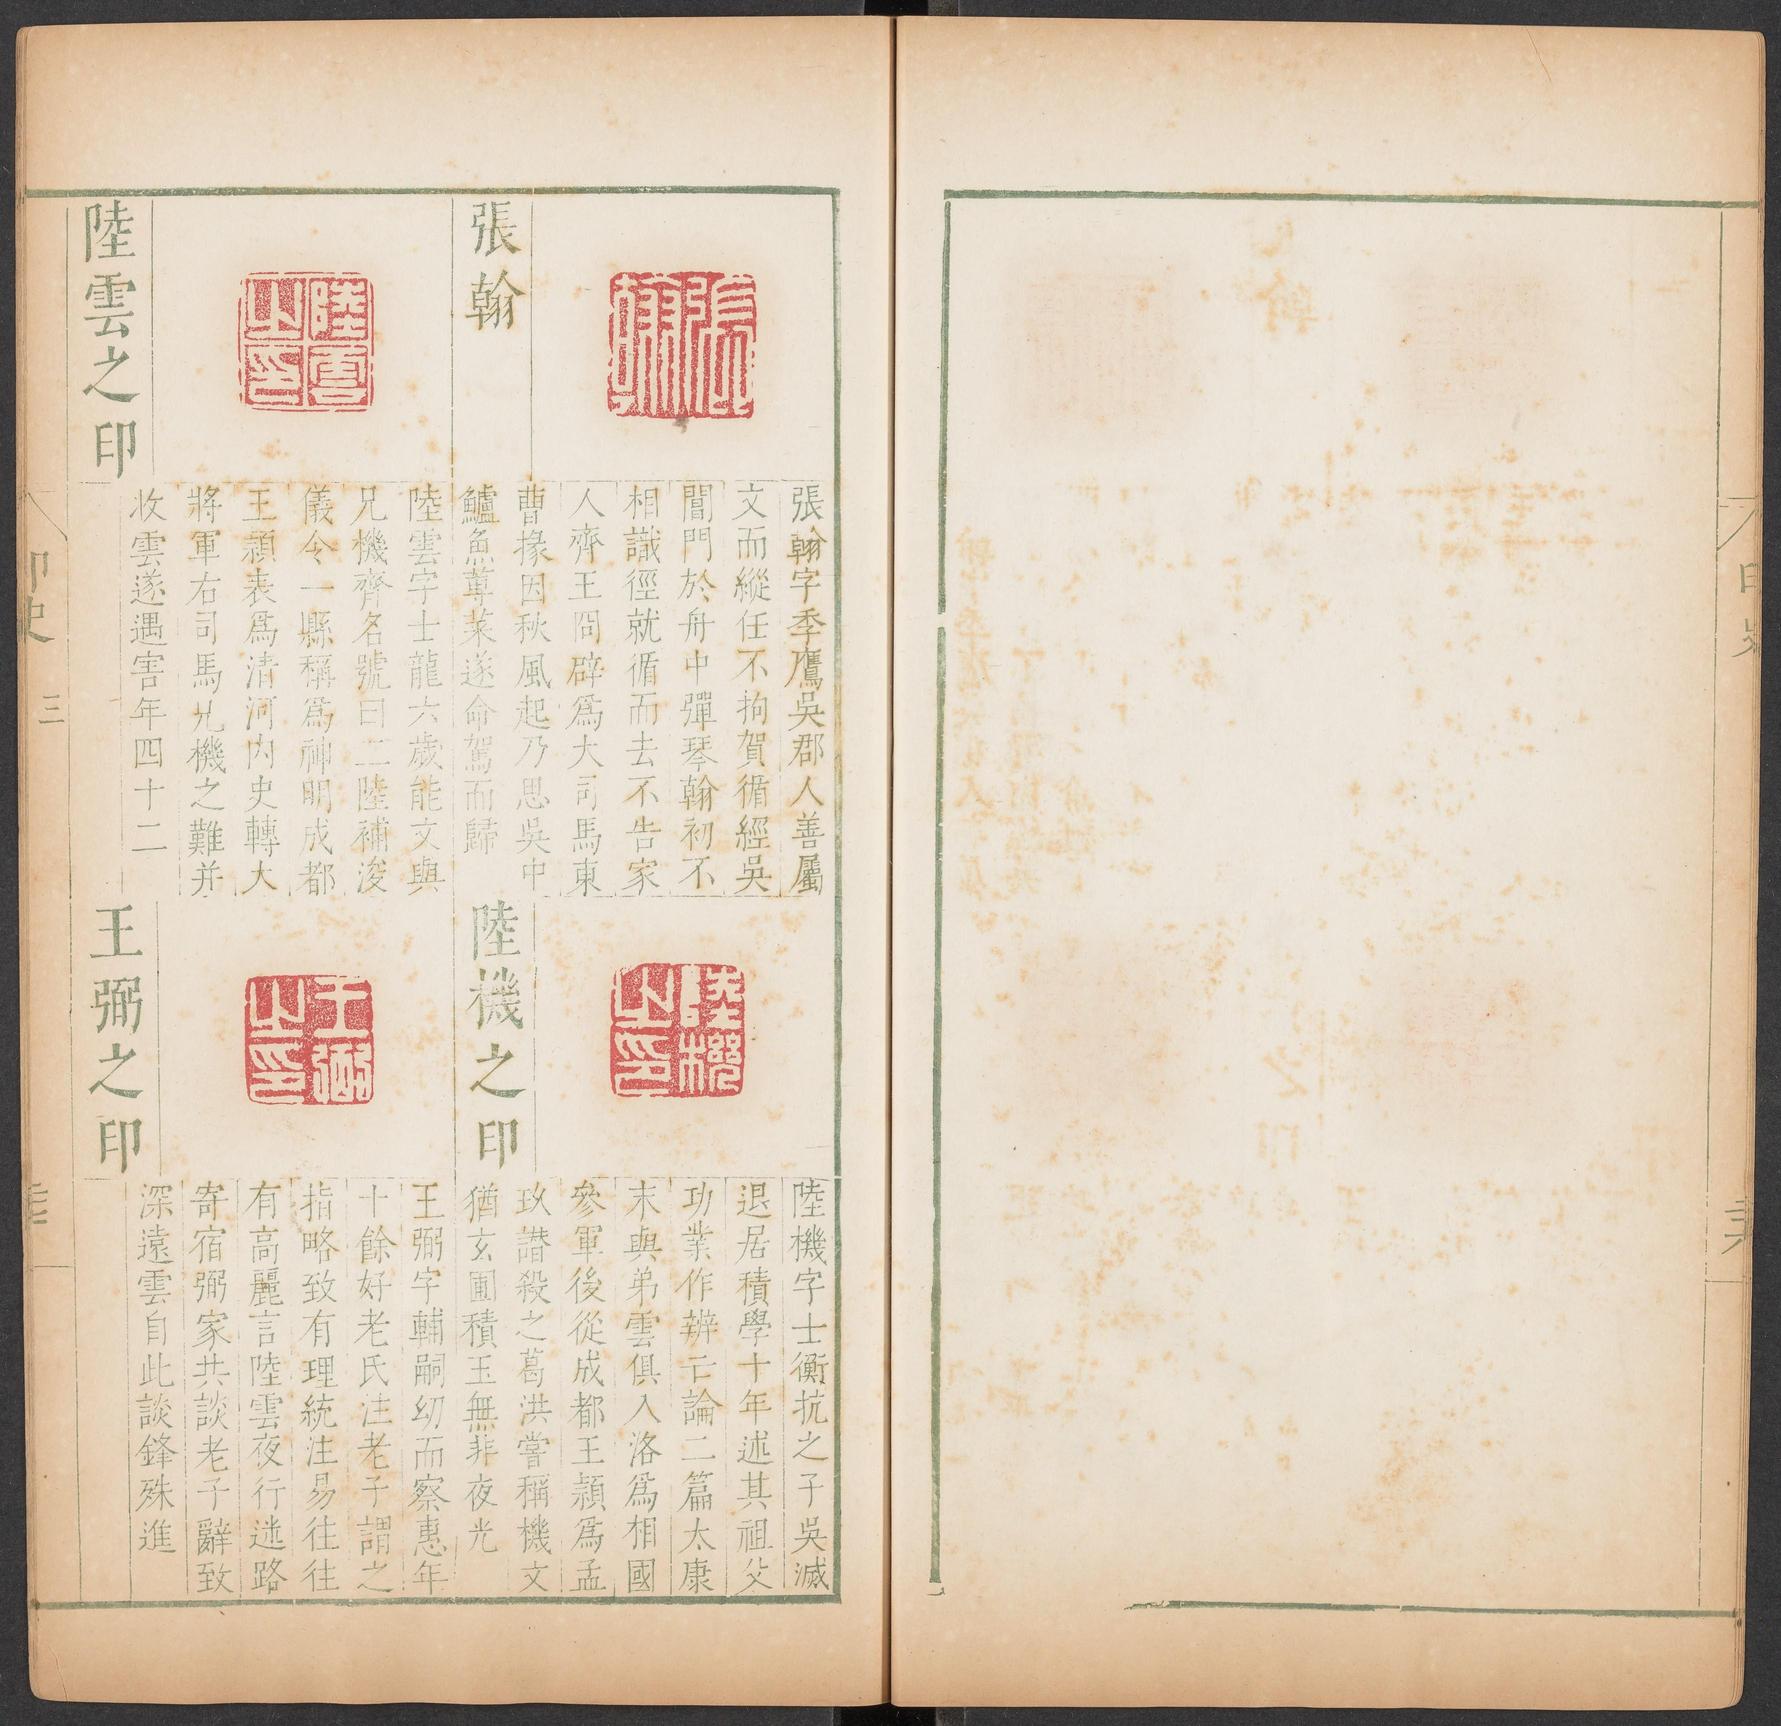 張翰
張翰字季鷹吳郡人善屬
文而縱任不拘賀循經吳
閶門於舟中彈琴翰初不
相識徑就循而去不告家
人齊王冏辟爲大司馬東
曹掾因秋風起乃思吳中
鱸魚蓴菜遂命駕而歸
陸雲之印
陸雲之印
陸雲字士龍六歲能文與
兄機齊名號曰二陸補浚
儀令一縣稱爲神明成都
王穎表爲清河內史轉大
將軍右司馬兄機之難并
收雲遂遇害年四十二
陸機之印
陸機之印
陸機字士衡抗之子吳滅
退居積學十年述其祖父
功業作辨亡論二篇太康
末與弟雲俱入洛爲相國
參軍後從成都王穎爲孟
玖譖殺之葛洪嘗稱機文
猶玄圃積玉無非夜光
王弼之印
王弼之印
王弼字輔嗣幼而察惠年
十餘好老氏注老子謂之
指略致有理統注易往往
有高麗言陸雲夜行迷路
寄宿弼家共談老子辭致
深遠雲自此談鋒殊進
印史
三
印史